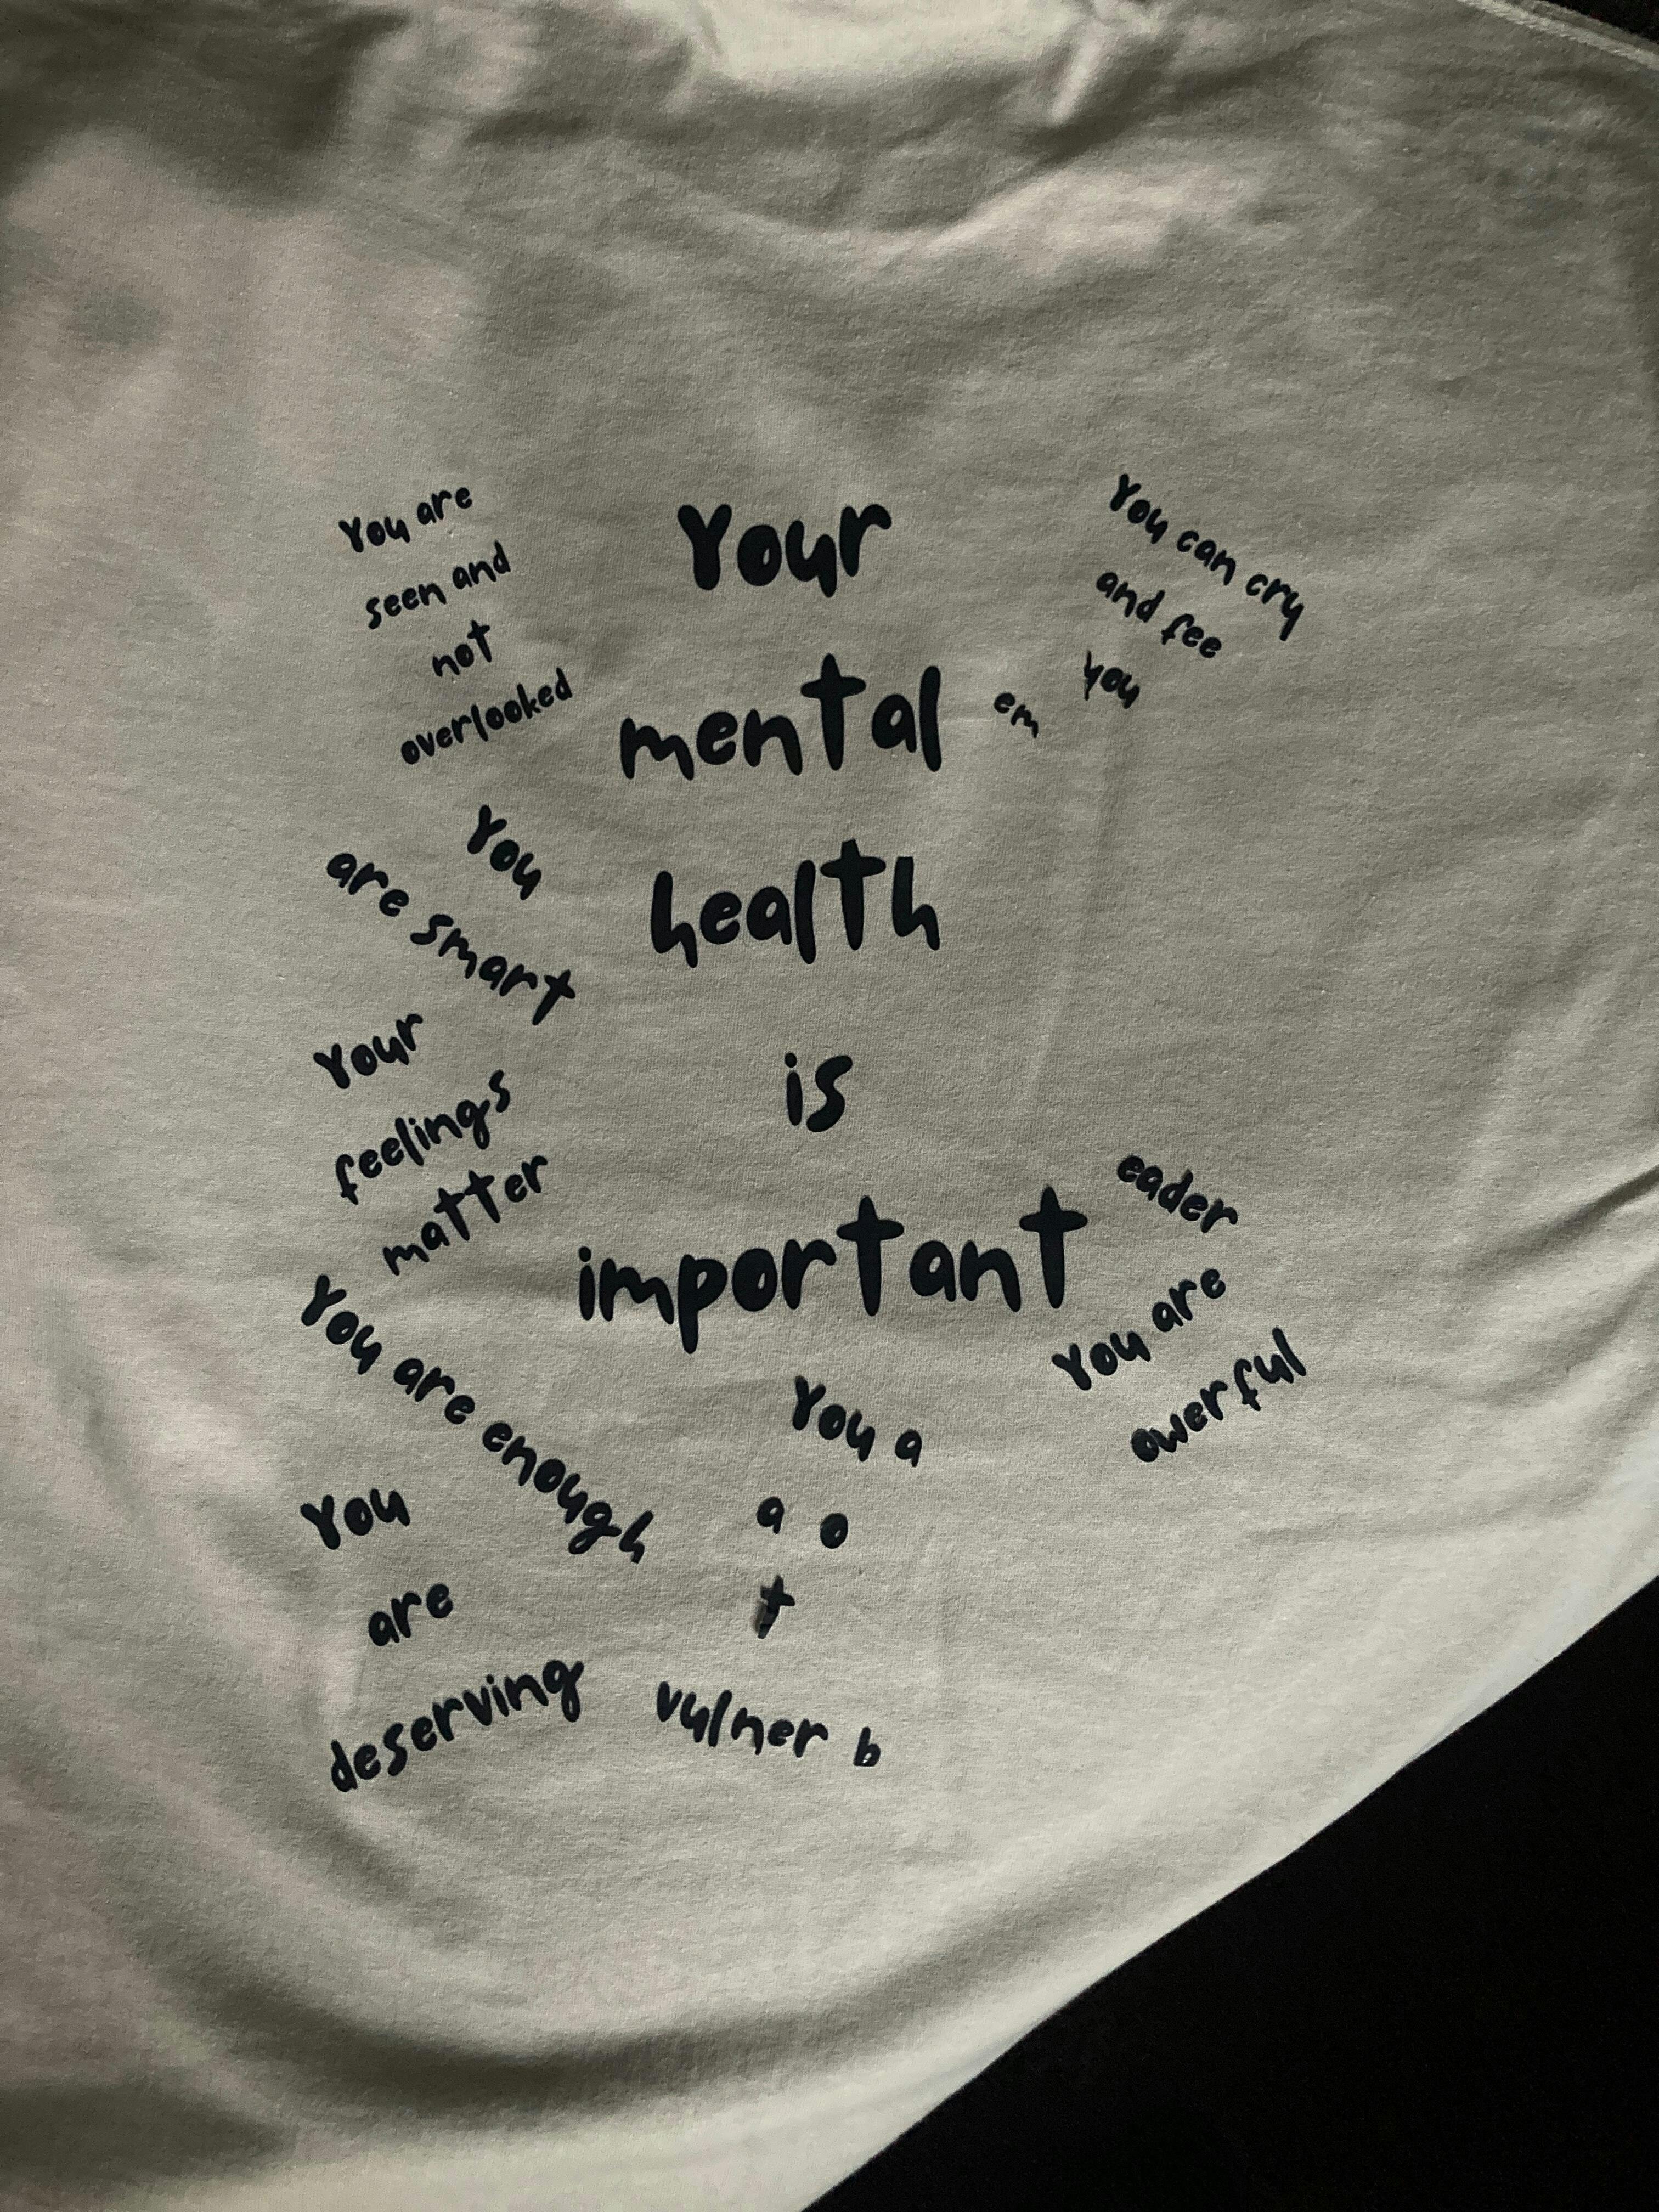 Your
mental
health
is
important
You are
seen and
not
overlooked
You
are smart
Your
feelings
matter
You are enough
You
are
deserving
You can cry
and fee
you
em
eader
You are
owerful
You a
a o
t
vulner b